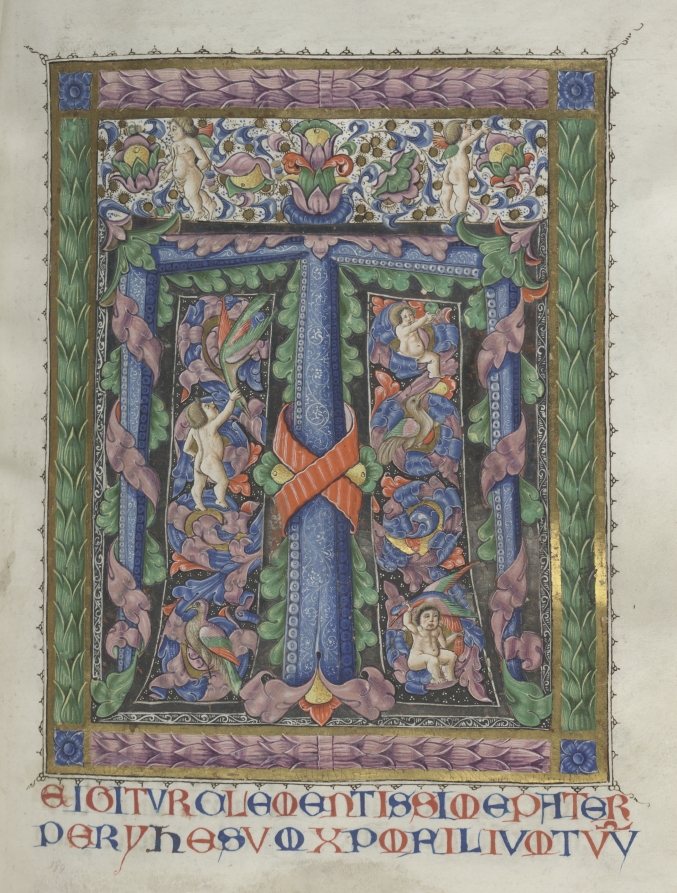 T
E IGITVR CLEMENTISSIME PATER
PER YHESVM XPM FILIVM TVV̅